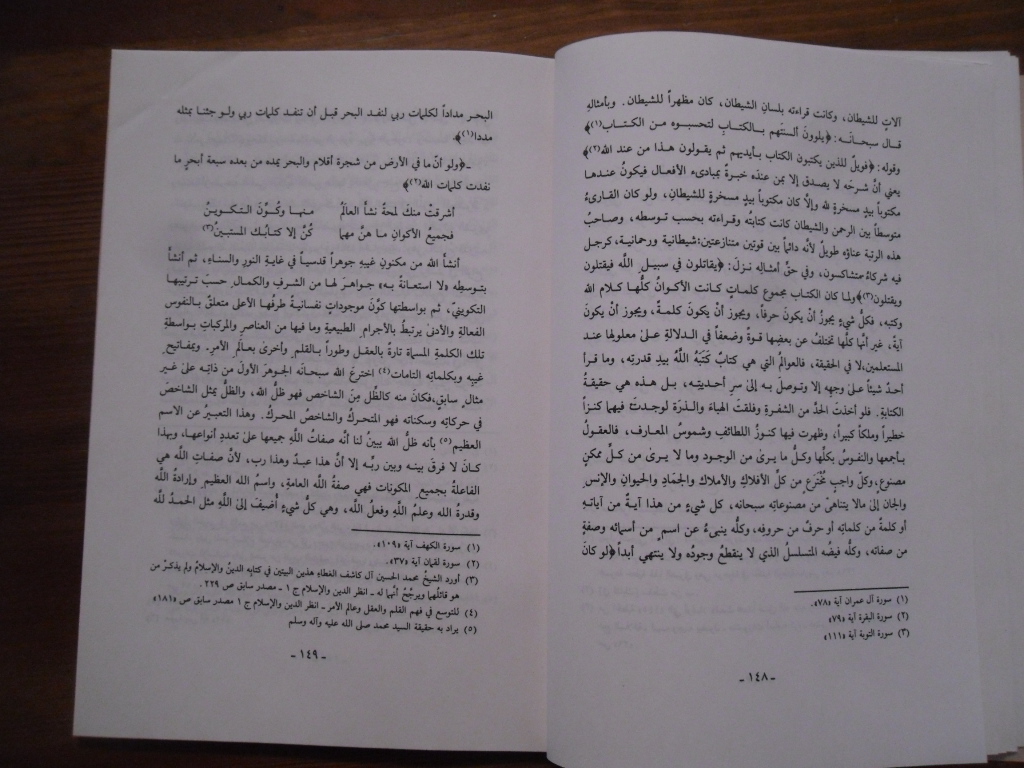 آلاتٍ للشيطان، وكانت قراءته بلسان الشيطان، كان مظهراً للشيطان. وبأمثالهِ
قال سبحانه: ﴿يلوونَ ألسنتهم بالكتابِ لتحسبوه من الكتاب(١)﴾
وقوله: ﴿فويلٌ للذين يكتبون الكتاب بأيديهم ثم يقولون هذا من عند الله(٢)﴾
يعني أنَّ شرحَه لا يصدق إلا بمن عندَه خبرةٌ بمبادىء الأفعال فيكونُ عندها
مكتوباً بيدٍ مسخرةٍ لله وإلّا كان مكتوباً بيدٍ مسخرةٍ للشيطانِ، ولو كان القارىءُ
متوسطاً بين الرحمن والشيطان كانت كتابتُه وقراءته بحسب توسطه، وصاحبُ
هذه الرتبة عناؤه طويلٌ لأنه دائماً بين قوتين متنازعتين: شيطانية ورحمانية، كرجل
فيه شركاءُ متشاكسون، وفي حقِّ أمثالِه نزلَ: ﴿يقاتلون في سبيلِ اللَّه فيقتلون
ويقتلون(٣)﴾ ولما كان الكتاب مجموع كلماتٍ كانت الأكوانُ كلُّها كلام الله
وكتبه، فكلُّ شيءٍ يجوزُ أنْ يكونَ حرفاً، ويجوز أنْ يكونَ كلمةً، ويجوز أنْ يكونَ
آيةً، غير أنَّها كلُّها تختلف عن بعضِها قوةً وضعفاً في الدلالةِ على معلولها عند
المستعلمين، لا في الحقيقة، فالعوالمُ التي هي كتابٌ كَتَبَهُ اللَّهُ بيدِ قدرتِه، وما قرأَ
أحدٌ شيئاً على وجهِه إلا وتوصلَ به إلى سرِ أحديتِه، بل هذه هي حقيقةُ
الكتابة. فلو أخذتَ الحدَّ من الشفرةِ وفلقتَ الهباءَ والذرةَ لوجدتَ فيهما كنزاً
خطيراً وملكاً كبيراً، وظهرت فيها كنوزُ اللطائف وشموسُ المعارف، فالعقولُ
بأجمعها والنفوسُ بكلِّها وكلُّ ما يرىٰ من الوجود وما لا يرىٰ من كلِّ ممكنٍ
مصنوعٍ، وكلِّ واجبٍ مُخْتَرَعٍ من كلِّ الأفلاكِ والأملاك والجمادِ والحيوانِ والإنس
والجان إلى مالا يتناهىٰ من مصنوعاتِه سبحانه، كل شيءٍ من هذا آيةٌ من آياته
أو كلمةٌ من كلماتِه أو حرفٌ من حروفِه، وكلُّه ينبىءُ عن اسمٍ من أسمائه وصفةٍ
من صفاته، وكلُّه فيضُه المتسلسلُ الذي لا ينقطعُ وجودُه ولا ينتهي أبداً ﴿لو كان
(١) سورة آل عمران آية «٧٨».
(٢) سورة البقرة آية «٧٩»
(٣) سورة التوبة آية «١١١»
- ١٤٨ -
البحر مداداً لكلمات ربي لنفد البحر قبل أن تنفد كلمات ربي ولو جئنا بمثله
مددا(١)﴾.
ـ ﴿ولو أنّ ما في الأرض من شجرة أقلام والبحر يمده من بعده سبعة أبحرٍ ما
نفدت كلمات الله(٢)﴾
أشرقتْ منكَ لمحةٌ نشأَ العالمُ منها وكُوِّنَ التكوينُ
فجميعُ الأكوانِ ما هنَّ مهما كُنَّ إلا كتابُك المستبينُ(٣)
أنشأَ الله من مكنونِ غيبِه جوهراً قدسياً في غايةِ النورِ والسناء، ثم أنشأَ
بتوسطِه «لا استعانةً به» جواهرَ لها من الشرفِ والكمالِ حسبَ ترتيبها
التكويني، ثم بواسطتها كوَّنَ موجوداتٍ نفسانيةً طرفُها الأعلى متعلقٌ بالنفوس
الفعالةِ والأدنى يرتبطُ بالأجرامِ الطبيعيةِ وما فيها من العناصرِ والمركباتِ بواسطةِ
تلك الكلمةِ المسماة تارةً بالعقلِ وطوراً بالقلمِ وأخرى بعالَمِ الأمرِ. وبمفاتيحِ
غيبِه وبكلماتِه التامات(٤) اخترعَ اللَّه سبحانَه الجوهرَ الأولَ من ذاتِه على غيرِ
مثالٍ سابقٍ، فكان منه كالظِّل مِنَ الشاخص فهو ظلُّ الله، والظلُّ يمثل الشاخصَ
في حركاته وسكناته فهو المتحركُ والشاخصُ المحركُ. وهذا التعبيرُ عن الاسم
العظيمِ(٥) بأنه ظلُّ الله يبينُ لنا أنَّه صفاتُ اللَّهِ جميعها على تعددِ أنواعِها، وبهذا
كانَ لا فرقَ بينه وبين ربِّه إلا أنَّ هذا عبدٌ وهذا رب، لأنَّ صفاتِ اللَّه هي
الفاعلةُ بجميعِ المكونات فهي صفةُ اللَّه العامةِ، واسمُ الله العظيم وإرادةُ اللَّه
وقدرةُ الله وعلمُ اللَّهِ وفعلُ الله، وهي كلُّ شيءٍ أُضيفَ إلى اللَّهِ مثل الحمدُ للَّه
(١) سورة الكهف آية «١٠٩».
(٢) سورة لقمان آية «٣٧».
(٣) أورد الشيخُ محمد الحسين آل كاشف الغطاءِ هذين البيتين في كتابِه الدين والإسلام ولم يذكرْ من
هو قائلُهما ويرجَّحُ أنَّهما له ـ انظر الدين والإسلام ج ١ ـ مصدر سابق ص ٢٢٩.
(٤) للتوسع في فهم القلم والعقل وعالم الأمر ـ انظر الدين والإسلام ج ١ مصدر سابق ص «١٨١»
(٥) يراد به حقيقة السيد محمد صلى الله عليه وآله وسلم
- ١٤٩ -